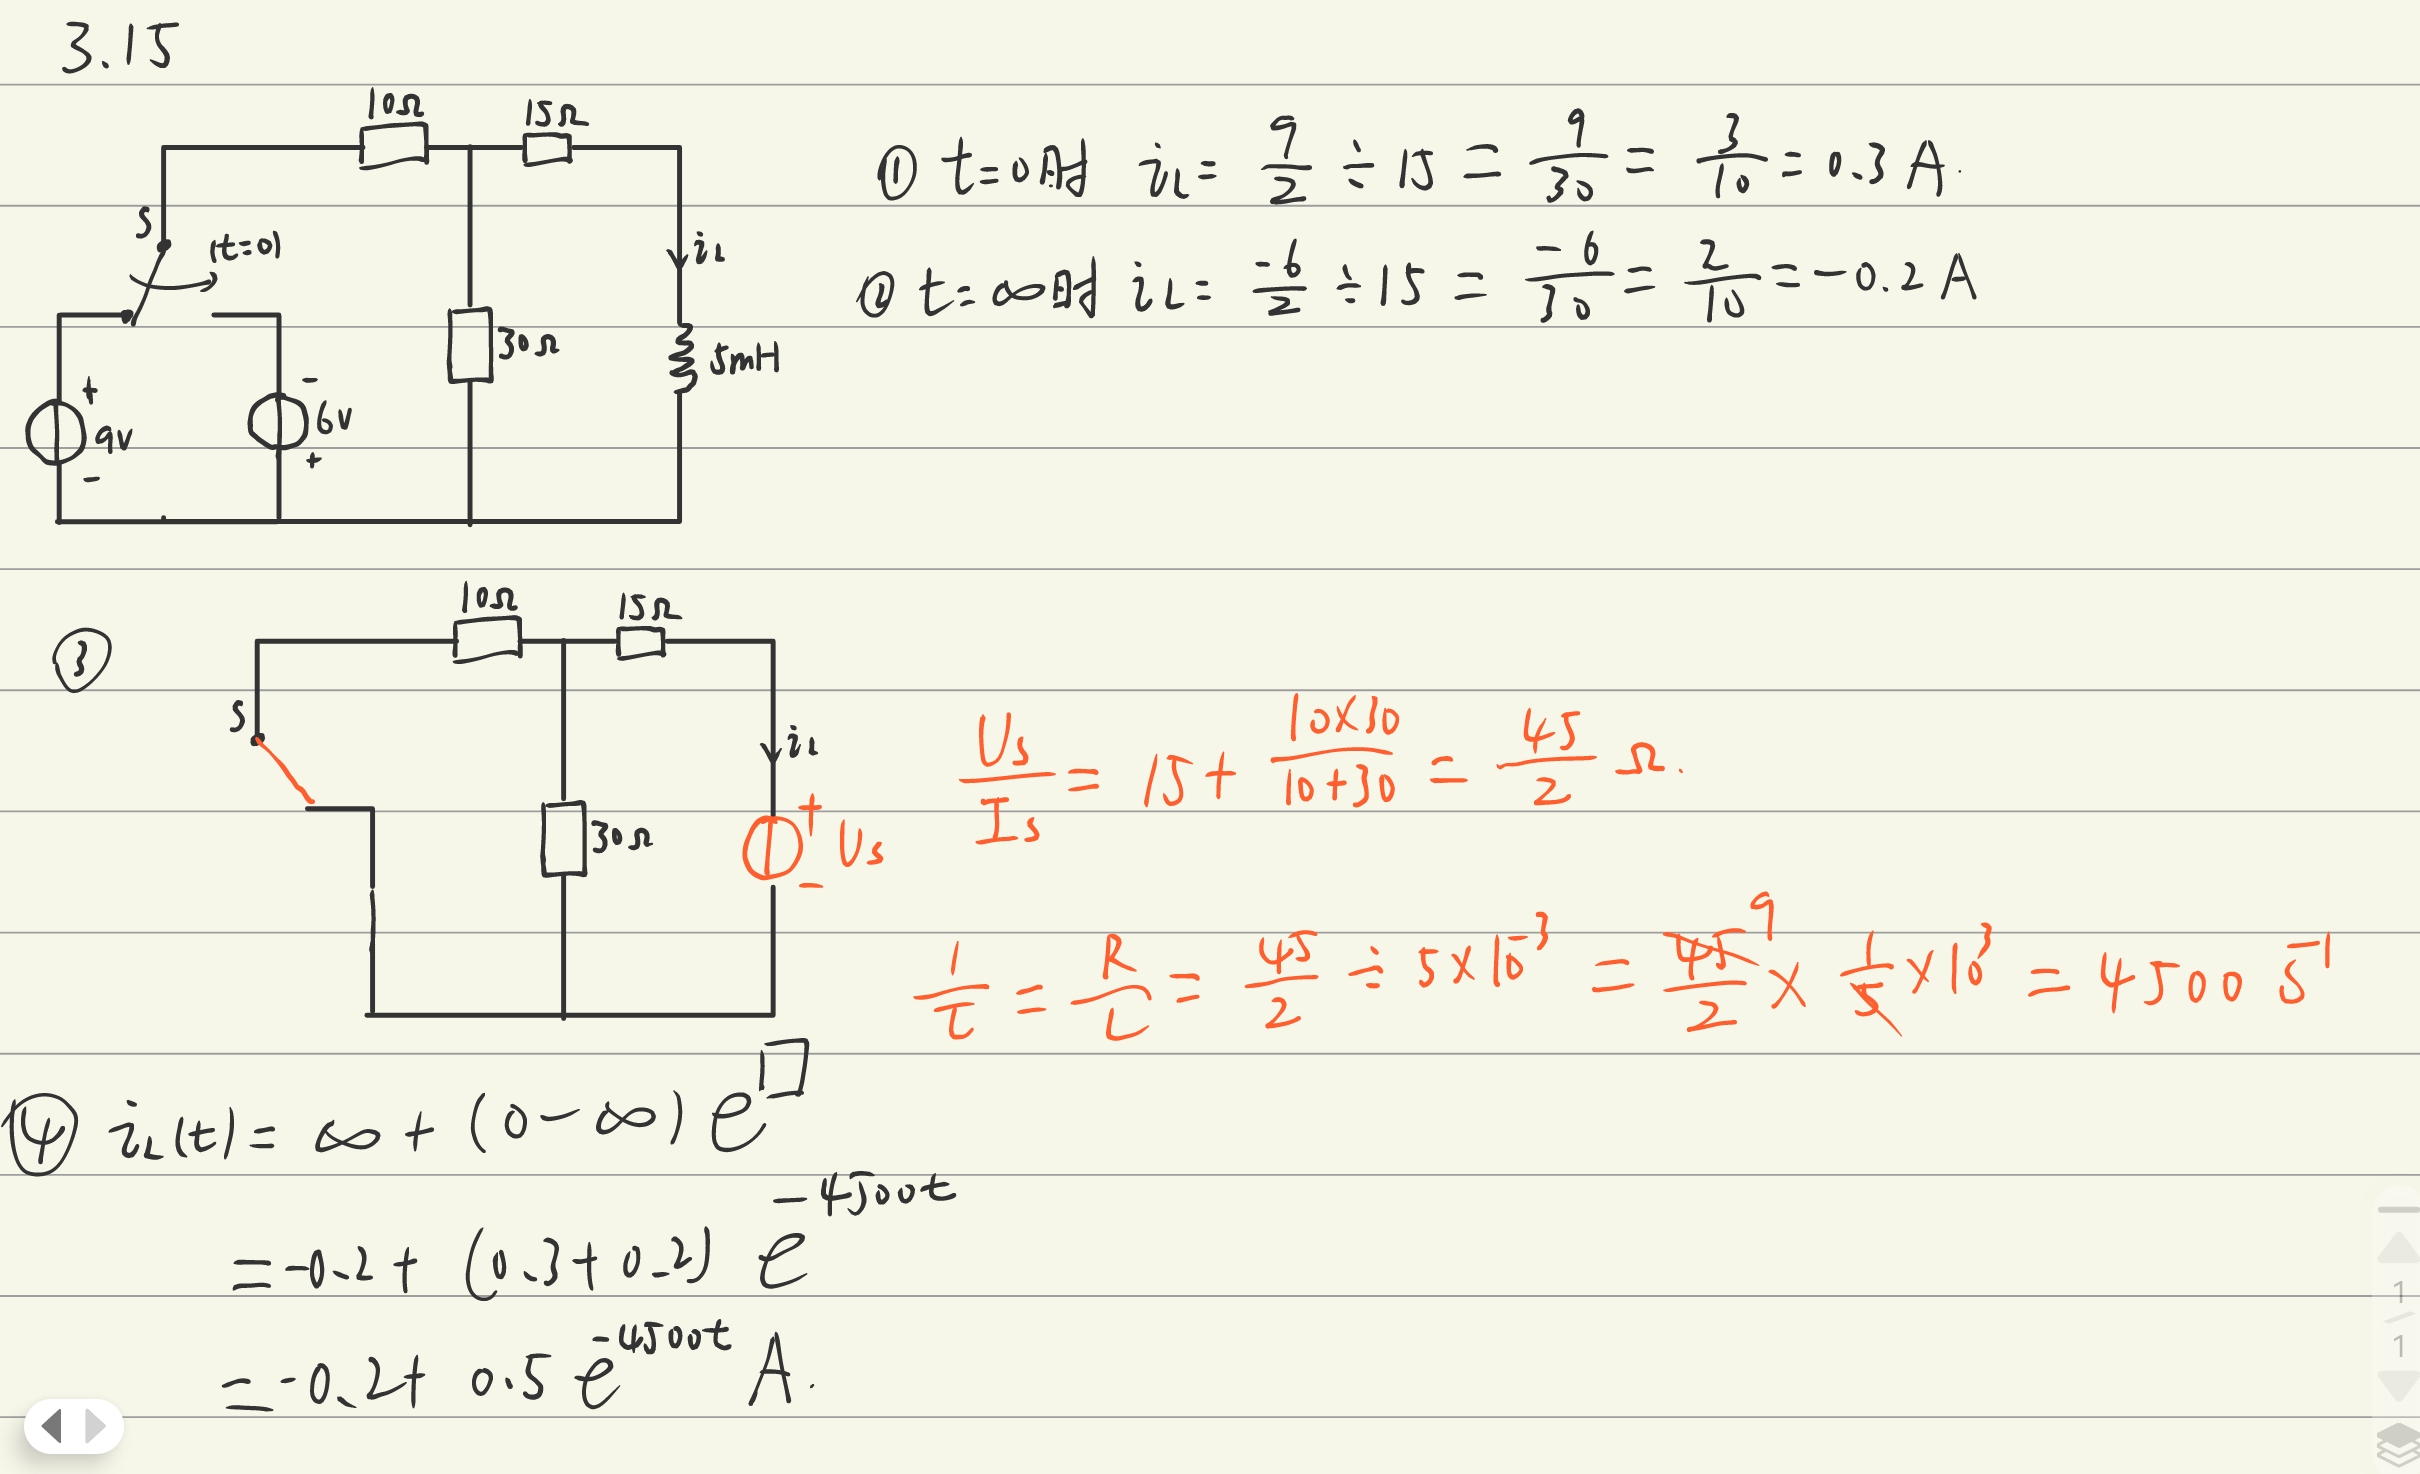 3.15
10Ω 15Ω
S (t=0) iL
30Ω 5mH
+ 9V -
- 6V +
① t=0时 iL= 9/2 ÷ 15 = 9/30 = 3/10 = 0.3 A.
② t=∞时 iL= -6/2 ÷ 15 = -6/30 = 2/10 = -0.2 A
③
10Ω 15Ω
S iL
30Ω + Us -
Us/Is = 15 + 10×30/10+30 = 45/2 Ω.
1/τ = R/L = 45/2 ÷ 5×10^-3 = 45/2 9 × 1/5 ×10^3 = 4500 s^-1
④ iL(t) = ∞ + (0-∞) e^□
= -0.2 + (0.3+0.2) e^-4500t
= -0.2 + 0.5 e^-4500t A.
1
1